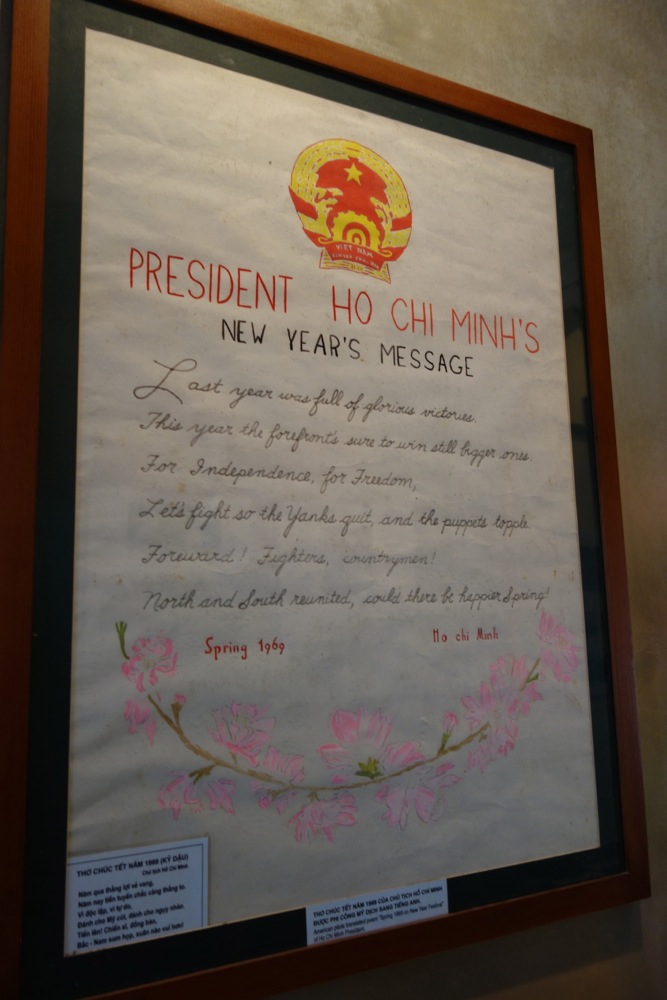 VIỆT NAM
PRESIDENT HO CHI MINH'S
NEW YEAR'S MESSAGE
Last year was full of glorious victories.
This year the forefront's sure to win still bigger ones.
For Independence, for Freedom,
Let's fight so the Yanks quit, and the puppets topple.
Foreward! Fighters, countrymen!
North and South reunited, could there be happier Spring!
Spring 1969
Ho chi Minh
THƠ CHÚC TẾT NĂM 1969 (KỶ DẬU)
Chủ tịch Hồ Chí Minh
Năm qua thắng lợi vẻ vang,
Năm nay tiền tuyến chắc càng thắng to.
Vì độc lập, vì tự do,
Đánh cho Mỹ cút, đánh cho ngụy nhào.
Tiến lên! Chiến sĩ, đồng bào,
Bắc - Nam sum họp, xuân nào vui hơn!
THƠ CHÚC TẾT NĂM 1969 CỦA CHỦ TỊCH HỒ CHÍ MINH
ĐƯỢC PHI CÔNG MỸ DỊCH SANG TIẾNG ANH.
American pilots translated poem "Spring 1969 on New Year Festival"
of Ho Chi Minh President.